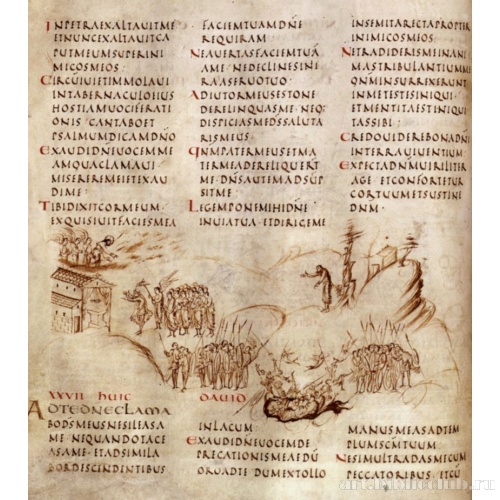 INPETRAEXALTAUITME
ETNUNCEXALTAUITCA
PUTMEUMSUPERINI
MICOSMEOS
CIRCUIUIETIMMOLAUI
INTABERNACULOEIUS
HOSTIAMUOCIFERATI
ONIS CANTABOET
PSALMUMDICAMDNO
EXAUDIDNEUOCEMME
AMQUACLAMAUI
MISEREREMEIETEXAU
DIME
TIBIDIXITCORMEUM
EXQUISIUITFACIESMEA
FACIEMTUAMDNE
REQUIRAM
NEAUERTASFACIEMTUA
AME NEDECLINESINI
RAASERUOTUO
ADIUTORMEUSESTONE
DERELINQUASME NEQ
DISPICIASMEDSSALUTA
RISMEUS
QNMPATERMEUSETMA
TERMEADERELIQUERT
ME DNSAUTEMADSUP
SITME
LEGEMPONEMIHIDNE
INUIATUA ETDIRIGEME
INSEMITARECTAPROPTER
INIMICOSMEOS
NETRADIDERISMEINANI
MASTRIBULANTIUMME
QNMINSURREXERUNT
INMETESTESINIQUI
ETMENTITAESTINIQUI
TASSIBI
CREDOUIDEREBONADNI
INTERRAUIUENTIUM
EXPECTADNMUIRILITER
AGE ETCONFORTETUR
CORTUUMETSUSTINE
DNM
XXVII HUIC DAUID
ADTEDNECLAMA
BODSMEUSNESILEASA
ME NEQUANDOTACE
ASAME ETADSIMILA
BORDESCENDENTIBUS
INLACUM
EXAUDIDNEUOCEMDE
PRECATIONISMEAEDU
OROADTE DUMEXTOLLO
MANUSMEASADTEM
PLUMSCMTUUM
NESIMULTRADASMECUM
PECCATORIBUS ETCU